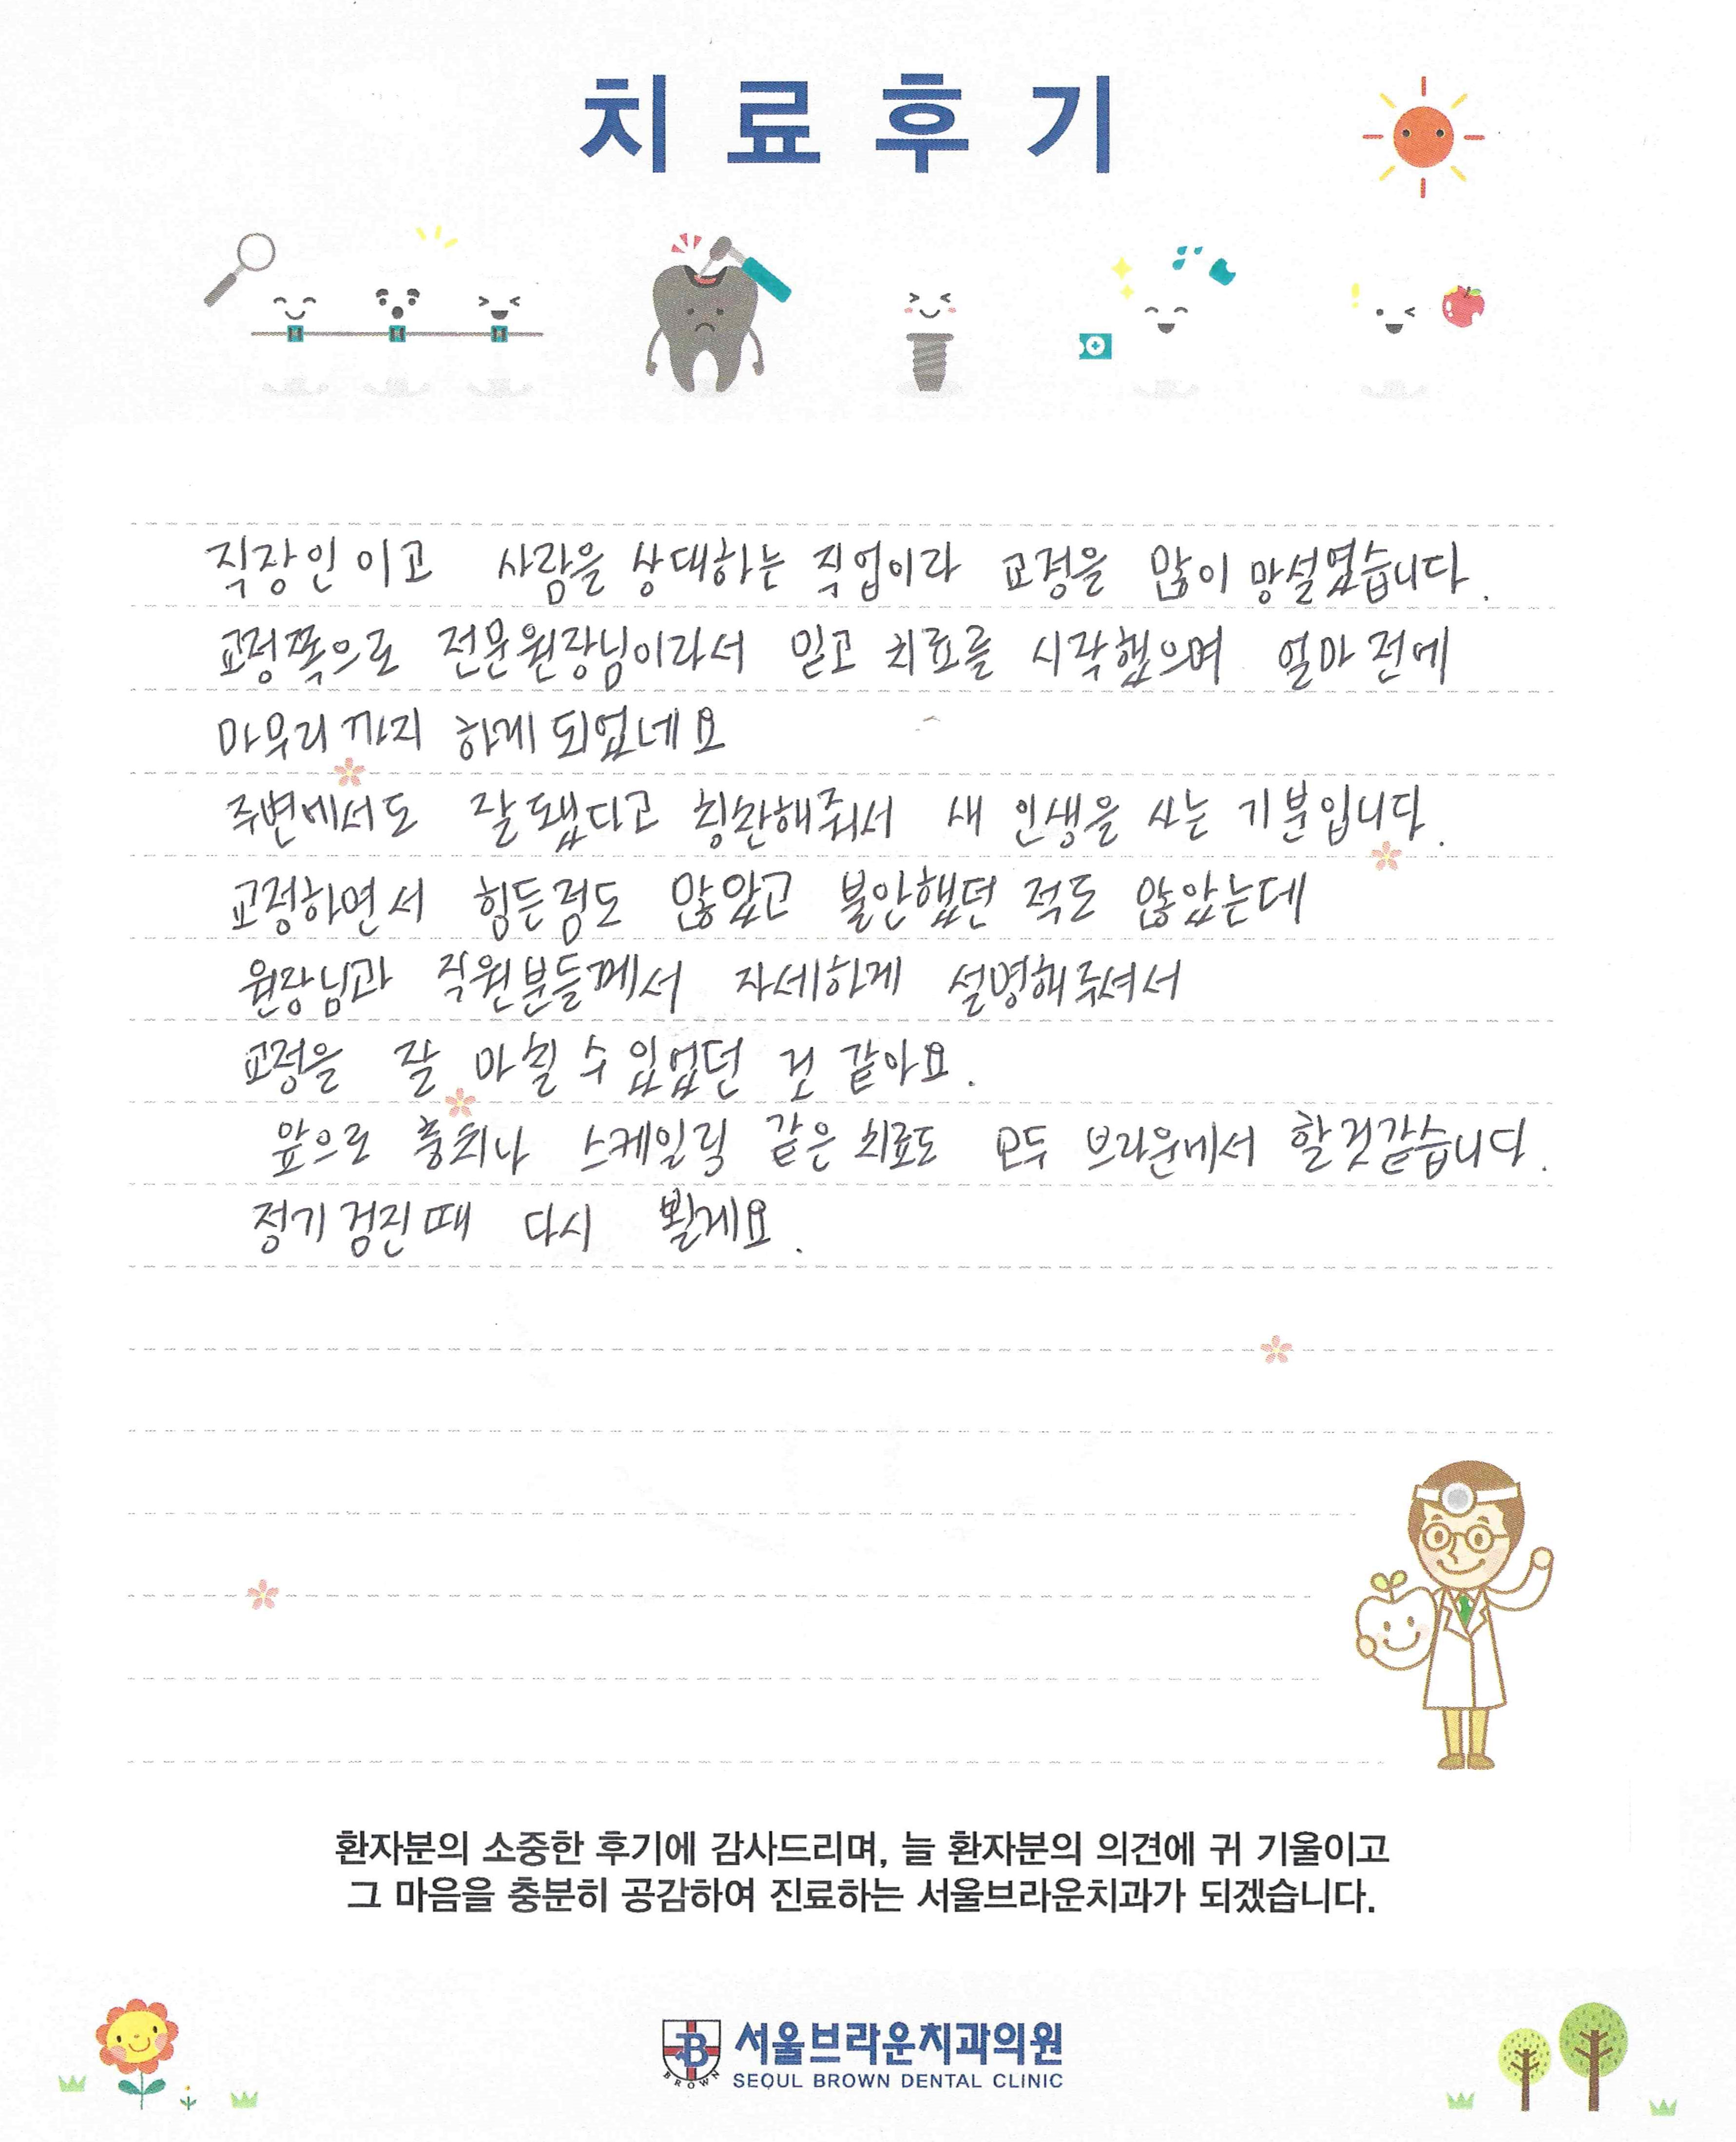 치료후기
직장인이고 사람을 상대하는 직업이라 교정을 많이 망설였습니다.
교정쪽으로 전문원장님이라서 믿고 치료를 시작했으며 얼마전에
마무리까지 하게 되었네요
주변에서도 잘됐다고 칭찬해줘서 새 인생을 사는 기분입니다.
교정하면서 힘든점도 많았고 불안했던 적도 많았는데
원장님과 직원분들께서 자세하게 설명해주셔서
교정을 잘 마칠 수 있었던 것 같아요.
앞으로 충치나 스케일링 같은 치료도 모두 브라운에서 할것같습니다.
정기검진때 다시 뵐게요.
환자분의 소중한 후기에 감사드리며, 늘 환자분의 의견에 귀 기울이고
그 마음을 충분히 공감하여 진료하는 서울브라운치과가 되겠습니다.
B
BROWN
서울브라운치과의원
SEOUL BROWN DENTAL CLINIC